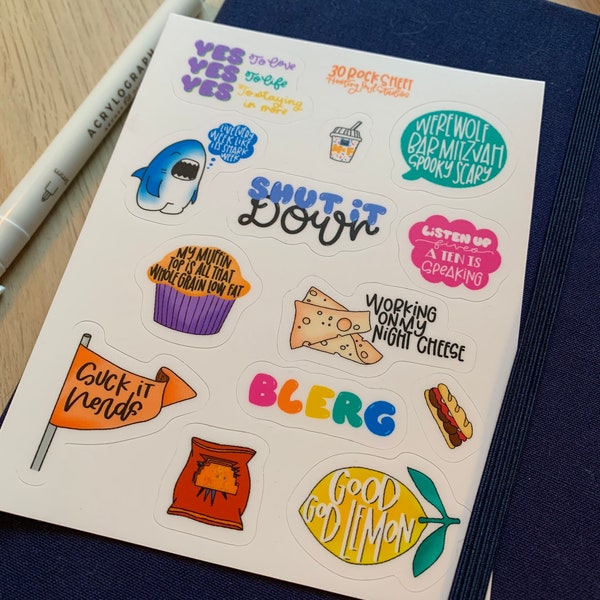 ACRYLOGRAPH
YES To love
YES To life
YES To staying
in more
30 ROCK SHEET
LIVE EVERY
WEEK LIKE
IT'S SHARK
WEEK
WEREWOLF
BAR MITZVAH
SPOOKY SCARY
SHUT iT
DOWN
LiSTEN UP
fives
A TEN IS
SPEAKING
MY MUFFIN
TOP IS ALL THAT
WHOLE GRAIN LOW FAT
WORKING
ON MY
NIGHT CHEESE
SUCK iT
nerds
BLERG
GOOD
GOD LEMON